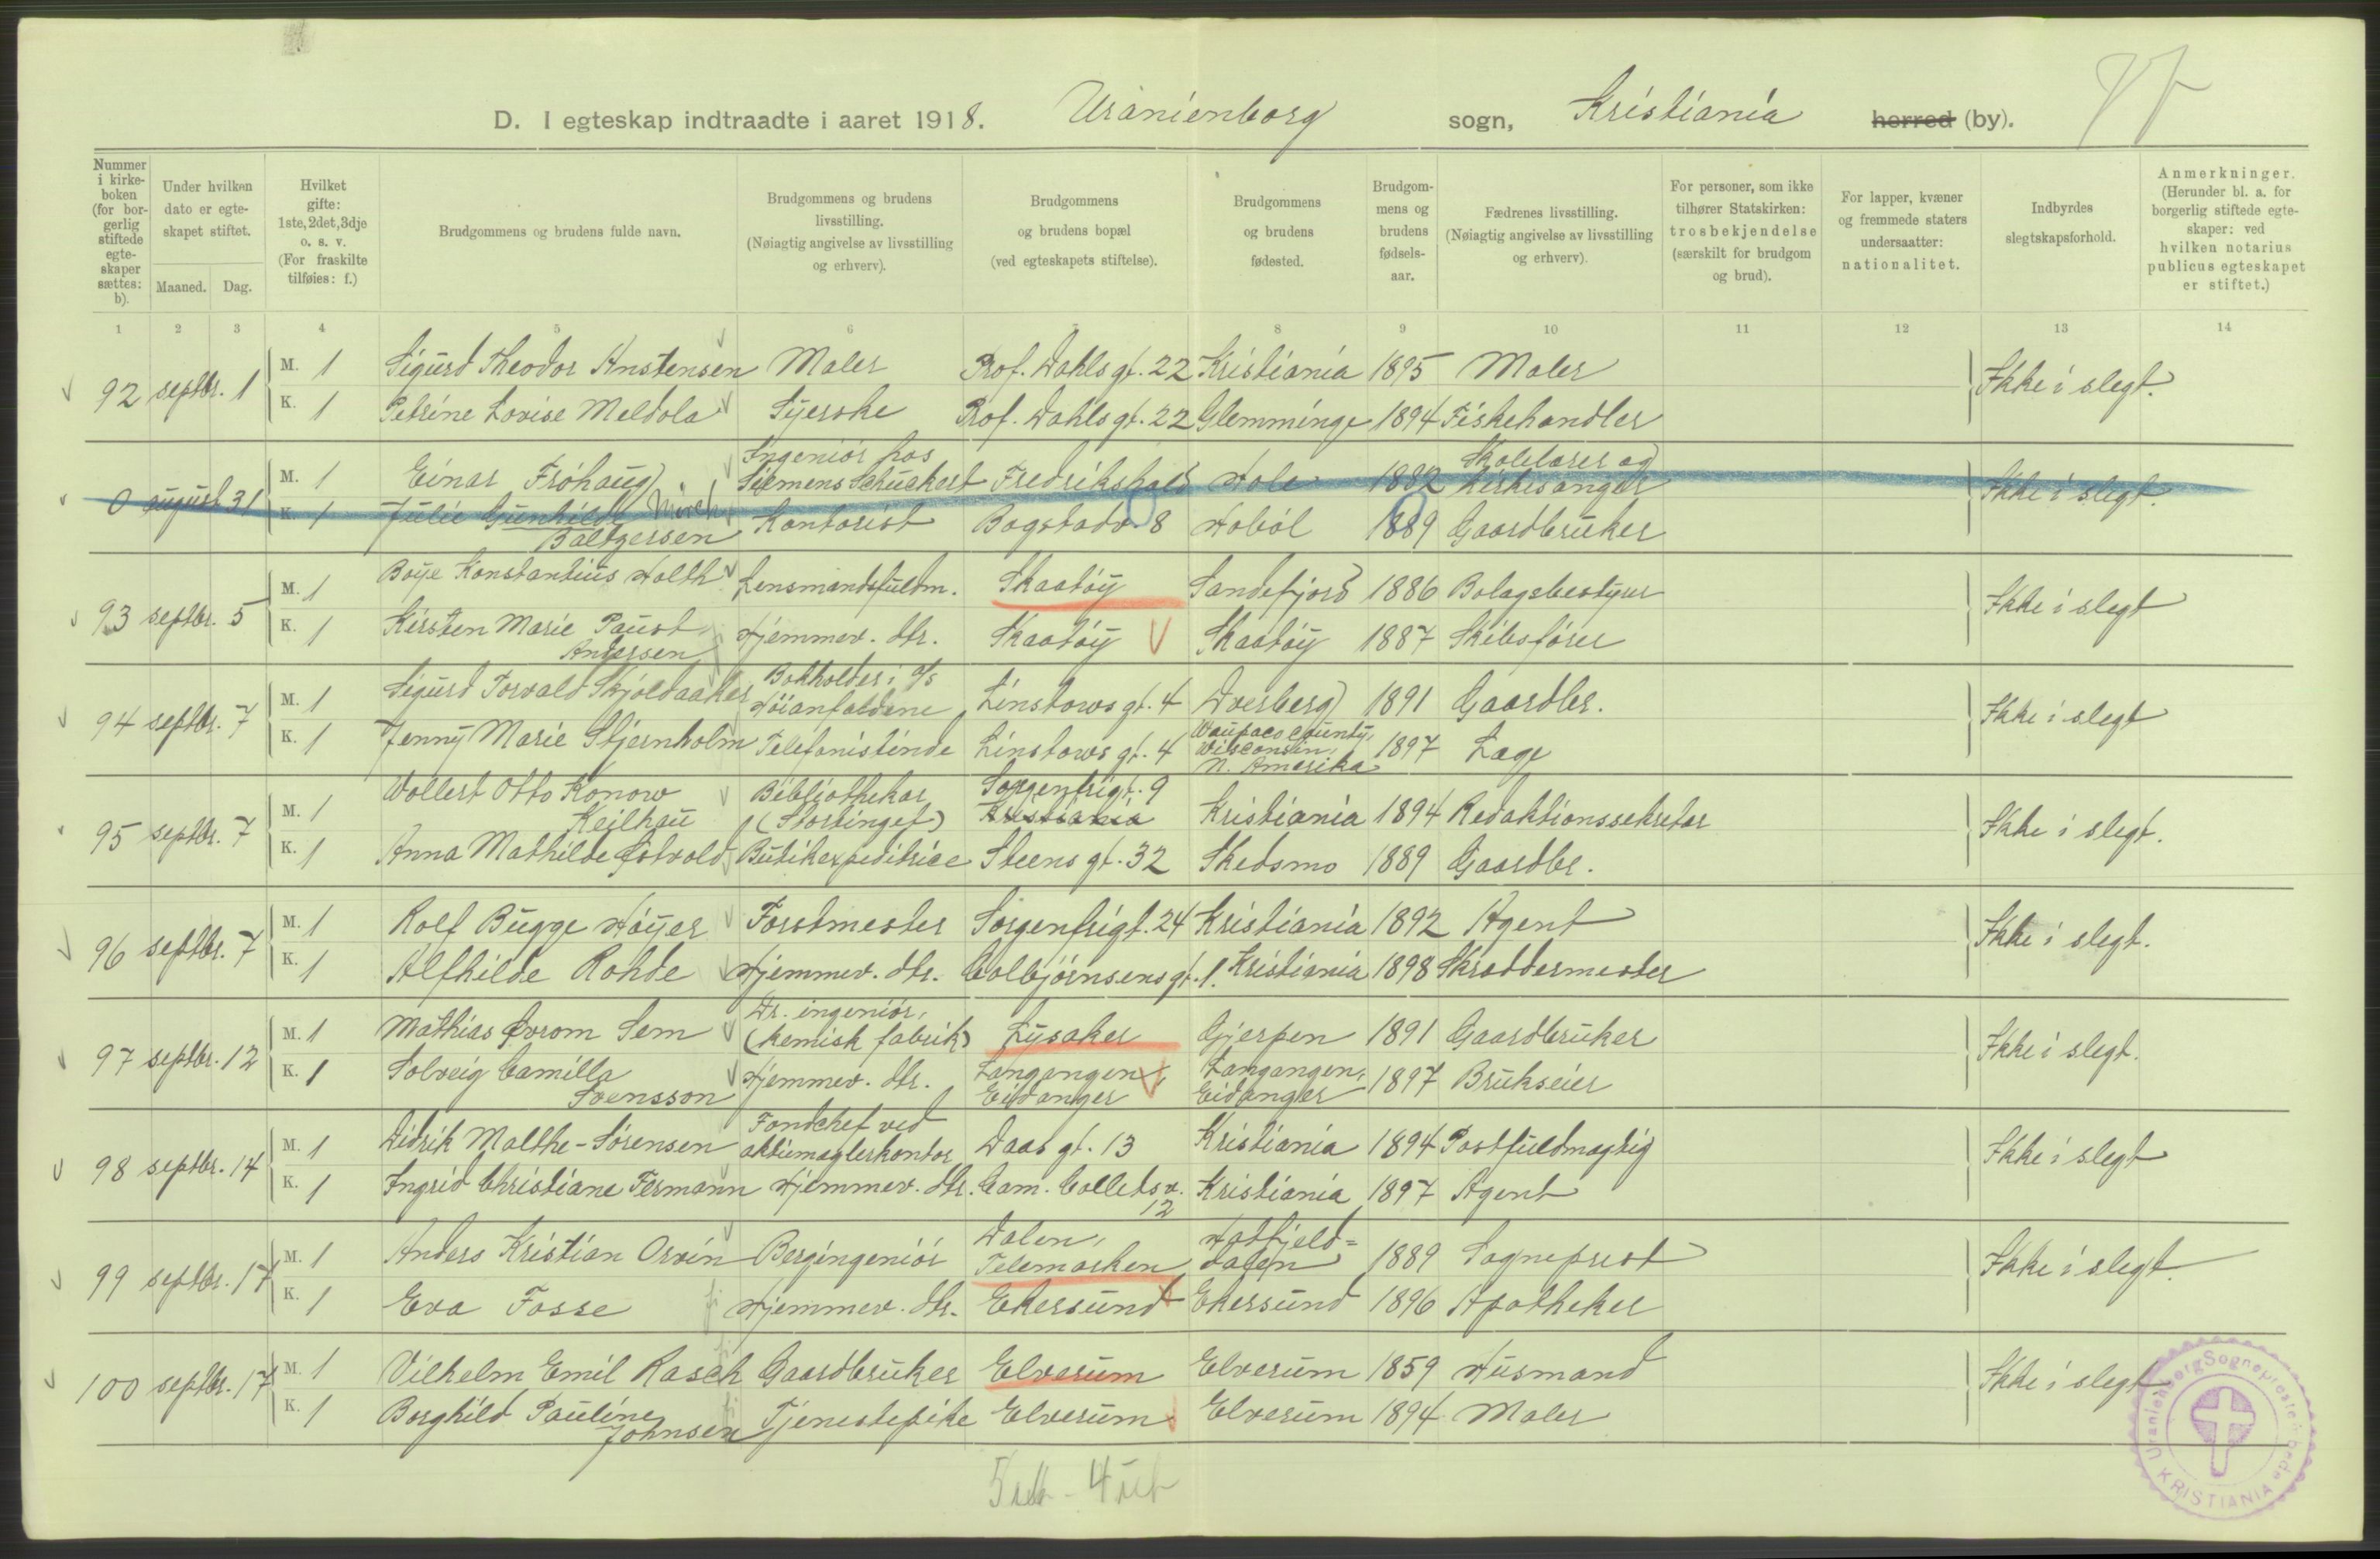 D. I egteskap indtraadte i aaret 1918. Uranienborg sogn, Kristiania herred (by).
Nummer i kirkeboken (for borgerlig stiftede egteskaper sættes: b).
Under hvilken dato er egteskapet stiftet.
Maaned. Dag.
Hvilket gifte: 1ste, 2det, 3dje o. s. v. (For fraskilte tilføies: f.)
Brudgommens og brudens fulde navn.
Brudgommens og brudens livsstilling. (Nøiagtig angivelse av livsstilling og erhverv).
Brudgommens og brudens bopæl (ved egteskapets stiftelse).
Brudgommens og brudens fødested.
Brudgommens og brudens fødselsaar.
Fædrenes livsstilling. (Nøiagtig angivelse av livsstilling og erhverv).
For personer, som ikke tilhører Statskirken: trosbekjendelse (særskilt for brudgom og brud).
For lapper, kvæner og fremmede staters undersaatter: nationalitet.
Indbyrdes slegtskapsforhold.
Anmerkninger. (Herunder bl. a. for borgerlig stiftede egteskaper: ved hvilken notarius publicus egteskapet er stiftet.)
1 2 3 4 5 6 7 8 9 10 11 12 13 14
92 septbr. 1 M. 1 Sigurd Theodor Anstensen Maler Prof. Dahls gt. 22 Kristiania 1895 Maler Ikke i slegt.
K. 1 Petrine Lovise Meldola Syerske Prof. Dahls gt. 22 Glemminge 1894 Fiskehandler
0 august 31 M. 1 Einar Fröhaug Ingeniör hos Siemens Schuckert Fredrikshald Hole 1882 Skolelærer og kirkesanger Ikke i slegt.
K. 1 Julie Gunhilde Baltzersen Kontorist Bogstadv. 8 Hoböl 1889 Gaardbruker
93 septbr. 5 M. 1 Boye Konstantius Holth Lensmandsfuldm. Skaatöy Sandefjord 1886 Bolagsbestyrer Ikke i slegt
K. 1 Kirsten Marie Paust Andersen Hjemmev. dtr. Skaatöy Skaatöy 1887 Skibsförer
94 septbr. 7 M. 1 Sigurd Torvald Skjoldaaker Bokholder i A/S Höianfaldene Linstows gt. 4 Dverberg 1891 Gaardbr. Ikke i slegt
K. 1 Jenny Marie Stjernholm Telefonistinde Linstows gt. 4 Waupaca county, Wisconsin, N. Amerika 1897 Læge
95 septbr. 7 M. 1 Wollert Otto Konow Keilhau Bibliothekar (Stortinget) Sorgenfrigt. 9 Kristiania Kristiania 1894 Redaktionssekretær Ikke i slegt.
K. 1 Anna Mathilde Östvold Butikexpeditrice Steens gt. 32 Skedsmo 1889 Gaardbr.
96 septbr. 7 M. 1 Rolf Bugge Höyer Forstmester Sorgenfrigt. 24 Kristiania 1892 Agent Ikke i slegt.
K. 1 Alfhilde Rohde Hjemmev. dtr. Colbjörnsens gt. 1. Kristiania 1898 Skræddermester
97 septbr. 12 M. 1 Mathias Övrom Sem Dr. ingeniör, (kemisk fabrik) Lysaker Gjerpen 1891 Gaardbruker Ikke i slegt.
K. 1 Solveig Camilla Svensson Hjemmev. dtr. Langangen, Eidanger Langangen, Eidanger 1897 Brukseier
98 septbr. 14 M. 1 Didrik Malthe-Sörensen Fondchef ved aktiemæglerkontor Daas gt. 13 Kristiania 1894 Postfuldmægtig Ikke i slegt
K. 1 Ingrid Christiane Fermann Hjemmev. dtr. Cam. Colletsv. 12 Kristiania 1897 Agent
99 septbr. 17 M. 1 Anders Kristian Orvin Bergingeniör Dalen, Telemarken Hatfjelddalen 1889 Sogneprest Ikke i slegt.
K. 1 Eva Fosse Hjemmev. dtr. Ekersund Ekersund 1896 Apotheker
100 septbr. 17 M. 1 Vilhelm Emil Rasch Gaardbruker Elverum Elverum 1859 Husmand Ikke i slegt
K. 1 Borghild Pauline Johnsen Tjenestepike Elverum Elverum 1894 Maler
Uranienborg Sogneprestembede KRISTIANIA